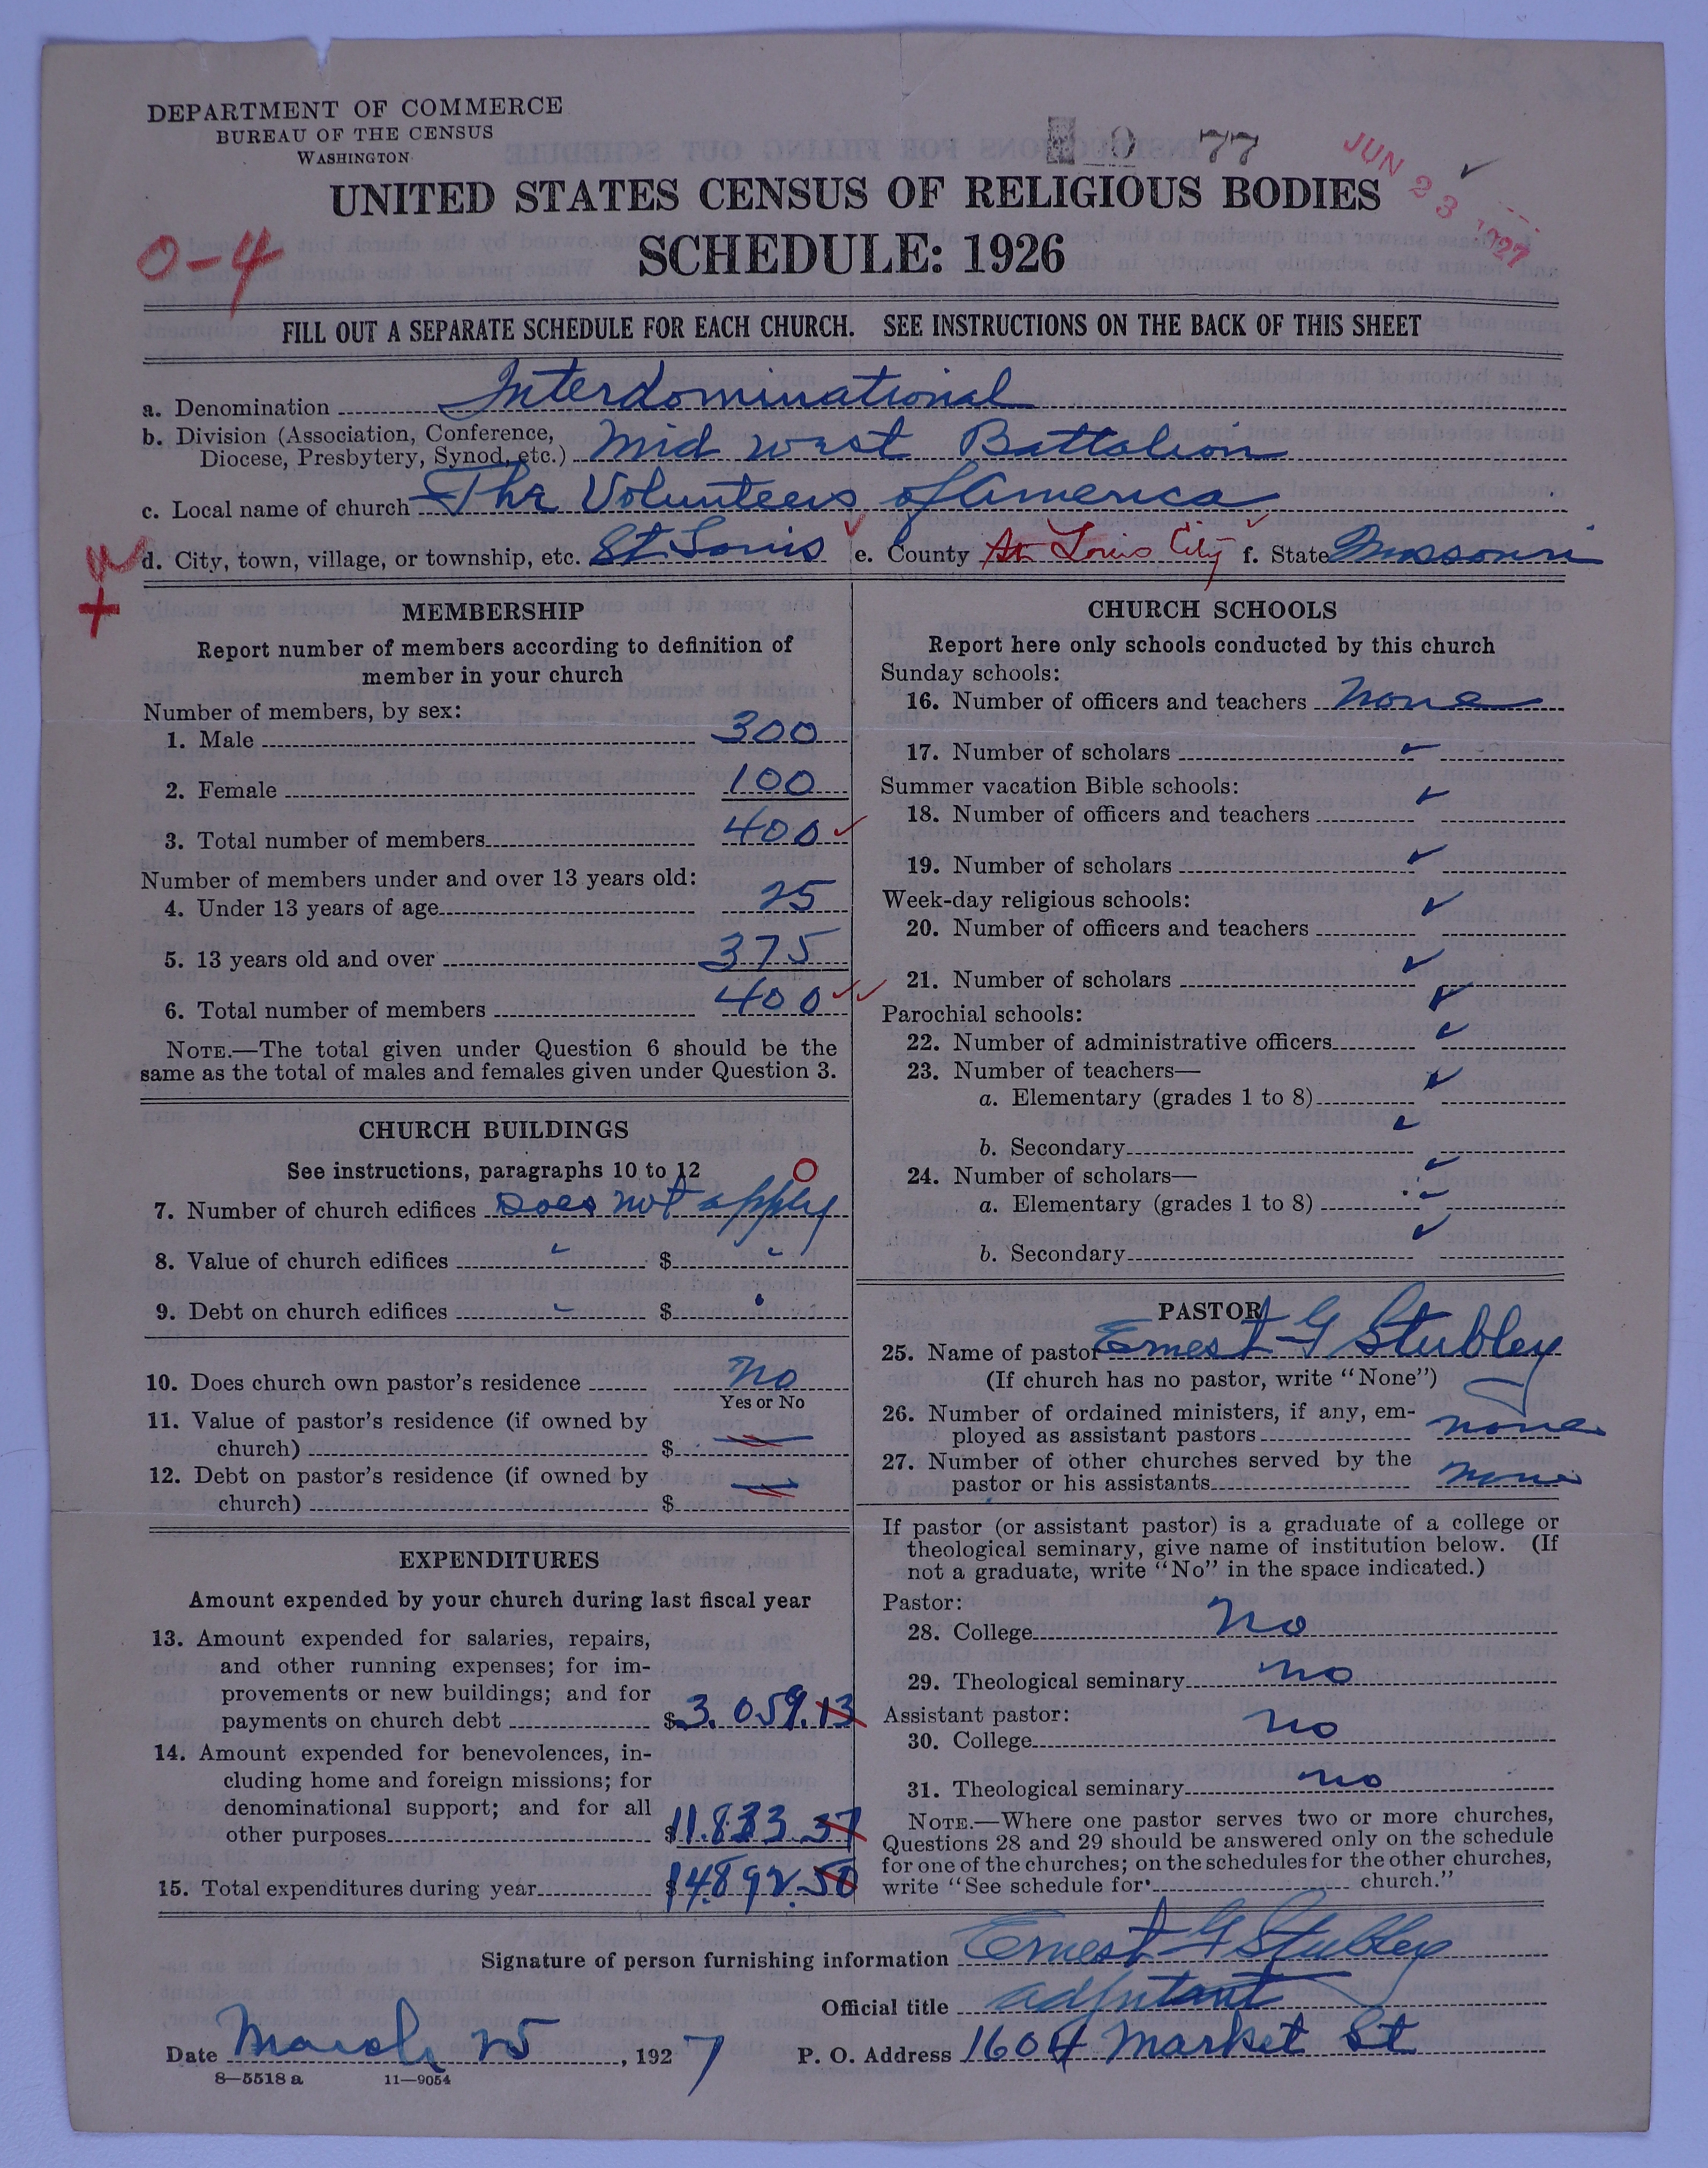 DEPARTMENT OF COMMERCE
BUREAU OF THE CENSUS
WASHINGTON
9 77
JUN 23 1927
UNITED STATES CENSUS OF RELIGIOUS BODIES
SCHEDULE: 1926
0-4
FILL OUT A SEPARATE SCHEDULE FOR EACH CHURCH. SEE INSTRUCTIONS ON THE BACK OF THIS SHEET
a. Denomination Interdominational
b. Division (Association, Conference, Diocese, Presbytery, Synod, etc.) Mid west Battalion
c. Local name of church The Volunteers of America
d. City, town, village, or township, etc. St Louis e. County St Louis City f. State Missouri
MEMBERSHIP
Report number of members according to definition of
member in your church
Number of members, by sex:
1. Male 300
2. Female 100
3. Total number of members 400
Number of members under and over 13 years old:
4. Under 13 years of age 25
5. 13 years old and over 375
6. Total number of members 400
NOTE.—The total given under Question 6 should be the
same as the total of males and females given under Question 3.
CHURCH BUILDINGS
See instructions, paragraphs 10 to 12 0
7. Number of church edifices Does not apply
8. Value of church edifices $
9. Debt on church edifices $
10. Does church own pastor's residence No
Yes or No
11. Value of pastor's residence (if owned by
church) $
12. Debt on pastor's residence (if owned by
church) $
EXPENDITURES
Amount expended by your church during last fiscal year
13. Amount expended for salaries, repairs,
and other running expenses; for im-
provements or new buildings; and for
payments on church debt $3.059.13
14. Amount expended for benevolences, in-
cluding home and foreign missions; for
denominational support; and for all
other purposes $11.833.37
15. Total expenditures during year $14892.50
CHURCH SCHOOLS
Report here only schools conducted by this church
Sunday schools:
16. Number of officers and teachers none
17. Number of scholars
Summer vacation Bible schools:
18. Number of officers and teachers
19. Number of scholars
Week-day religious schools:
20. Number of officers and teachers
21. Number of scholars
Parochial schools:
22. Number of administrative officers
23. Number of teachers—
a. Elementary (grades 1 to 8)
b. Secondary
24. Number of scholars—
a. Elementary (grades 1 to 8)
b. Secondary
PASTOR
25. Name of pastor Ernest G Stubley
(If church has no pastor, write "None")
26. Number of ordained ministers, if any, em-
ployed as assistant pastors none
27. Number of other churches served by the
pastor or his assistants none
If pastor (or assistant pastor) is a graduate of a college or
theological seminary, give name of institution below. (If
not a graduate, write "No" in the space indicated.)
Pastor:
28. College no
29. Theological seminary no
Assistant pastor:
30. College no
31. Theological seminary no
NOTE.—Where one pastor serves two or more churches,
Questions 28 and 29 should be answered only on the schedule
for one of the churches; on the schedules for the other churches,
write "See schedule for church."
Signature of person furnishing information Ernest G Stubley
Official title adjutant
Date March 25, 1927 P. O. Address 1604 Market St
8—5518 a 11—9054